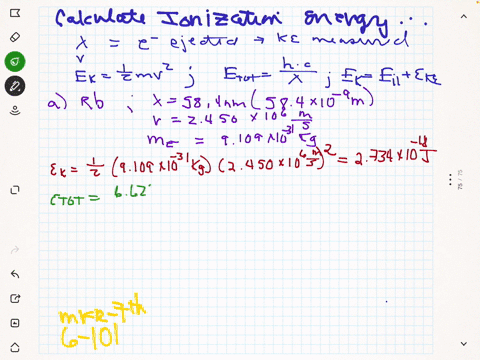 Calculate Ionization energy...
λ = e⁻ ejected → KE measured
v
EK = 1/2 mv² ; ETOT = h·c/λ ; EK = EII + EKE
a) Rb ; λ = 58,4nm (58.4×10⁻⁹m)
v = 2.450 × 10⁶ m/s
me = 9.109×10⁻³¹ Kg
EK = 1/2 (9.109×10⁻³¹ Kg) (2.450×10⁶ m/s)² = 2.734×10⁻¹⁸ J
ETOT = 6.62
mKR-7th
6-101
75 / 75